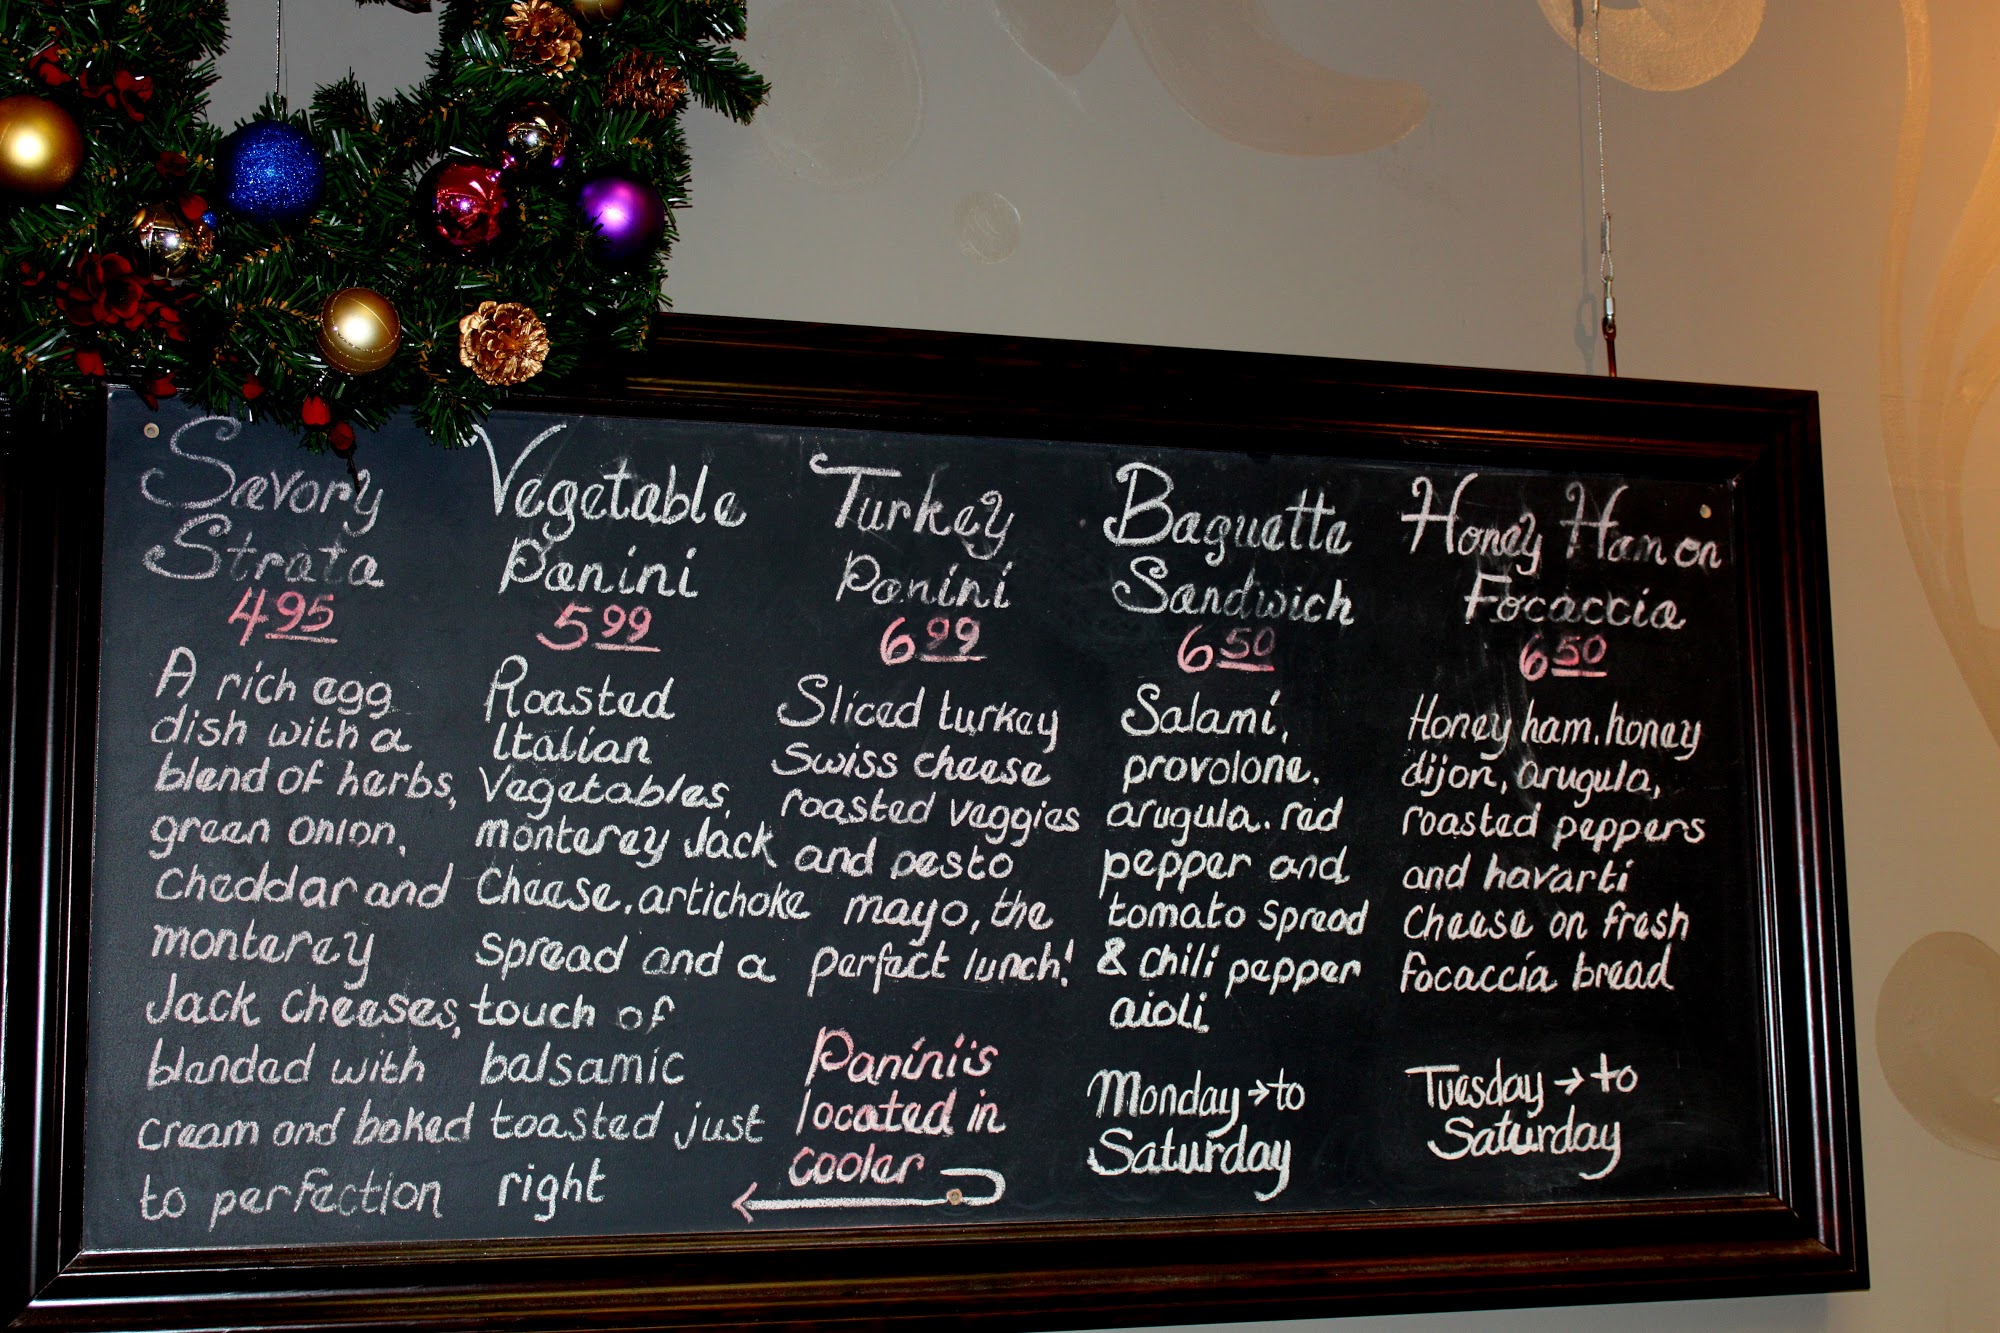 Savory
Strata
4.95
A rich egg
dish with a
blend of herbs,
green onion,
cheddar and
monterey
Jack cheeses,
blended with
cream and baked
to perfection
Vegetable
Panini
5.99
Roasted
Italian
Vegetables,
monterey Jack
Cheese, artichoke
spread and a
touch of
balsamic
toasted just
right
Turkey
Panini
6.99
Sliced turkey
Swiss cheese
roasted veggies
and pesto
mayo, the
perfect lunch!
Panini's
located in
cooler
Baguette
Sandwich
6.50
Salami,
provolone,
arugula, red
pepper and
tomato spread
& chili pepper
aioli
Monday → to
Saturday
Honey Ham on
Focaccia
6.50
Honey ham, honey
dijon, arugula,
roasted peppers
and havarti
Cheese on fresh
focaccia bread
Tuesday → to
Saturday